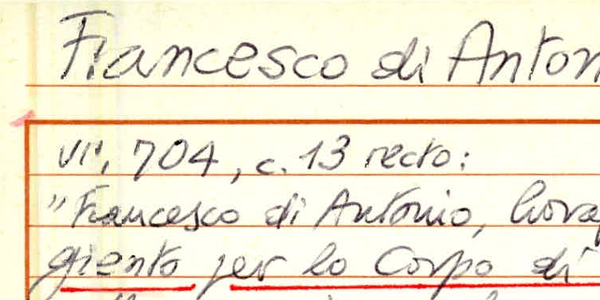 Francesco di Anton
VI, 704, c. 13 recto:
"Francesco di Antonio,
giento per lo Corpo di